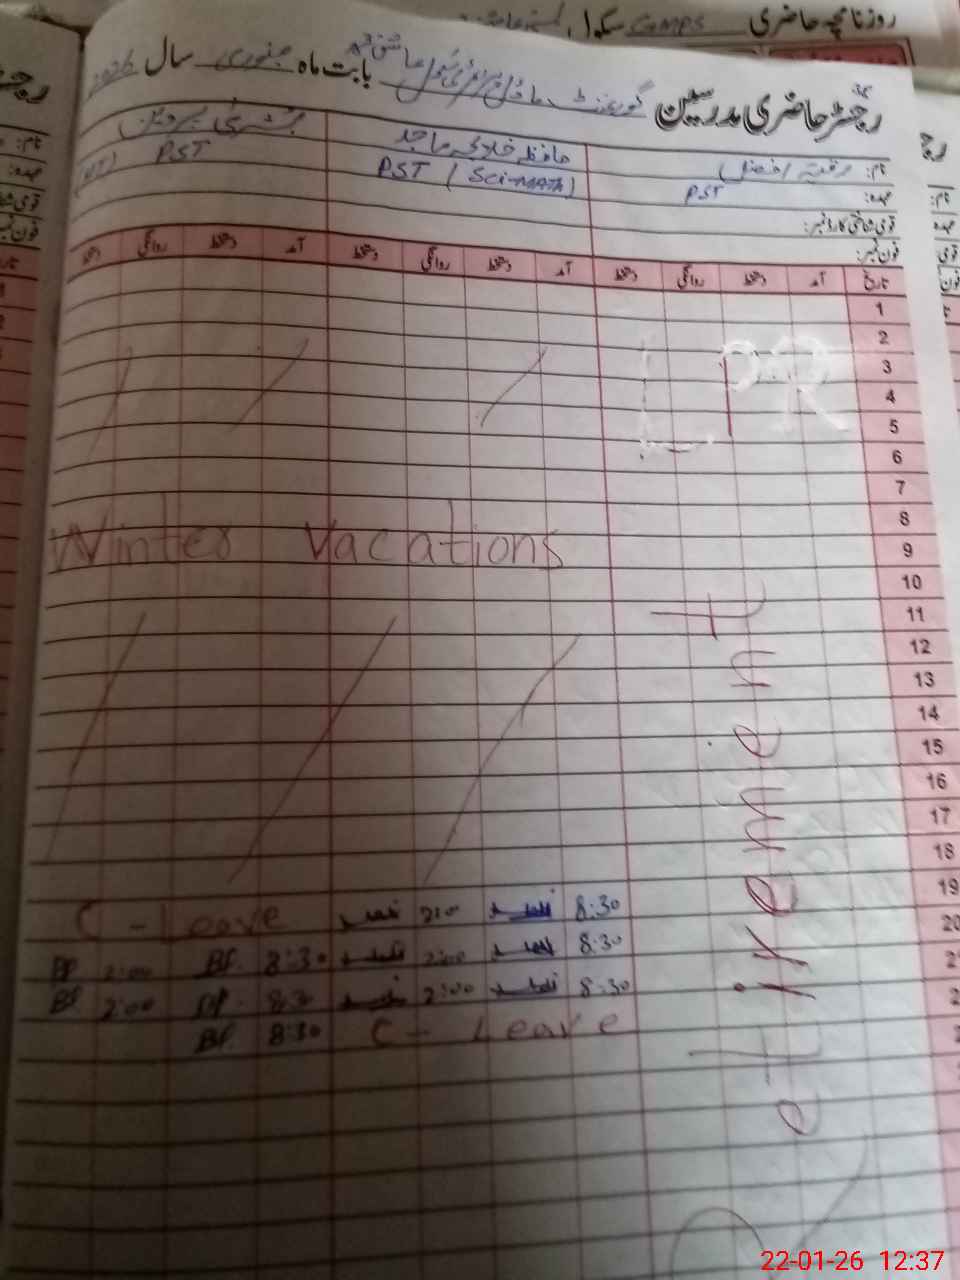 روزنامچہ حاضری سکول GMPS
رجسٹر حاضری مدرسین گورنمنٹ ماڈل پرائمری سکول بابت ماہ جنوری سال 2026
نام: رقیہ افضل
عہدہ: PST
PST (Sci-MATH)
بشریٰ پروین
PST
قومی شناختی کارڈ نمبر:
فون نمبر:
تاریخ آمد دستخط روانگی دستخط آمد دستخط روانگی دستخط آمد دستخط روانگی دستخط
1
2
3
4
5
6
7
8
9
10
11
12
13
14
15
16
17
18
19
20
LPR
Retirement
Winter Vacations
C - Leave 2:0 8:30
BF 2:00 BF. 8:30 2:00 8:30
BF 2:00 BF. 8:30 2:00 8:30
BF. 8:30 C - Leave
22-01-26 12:37